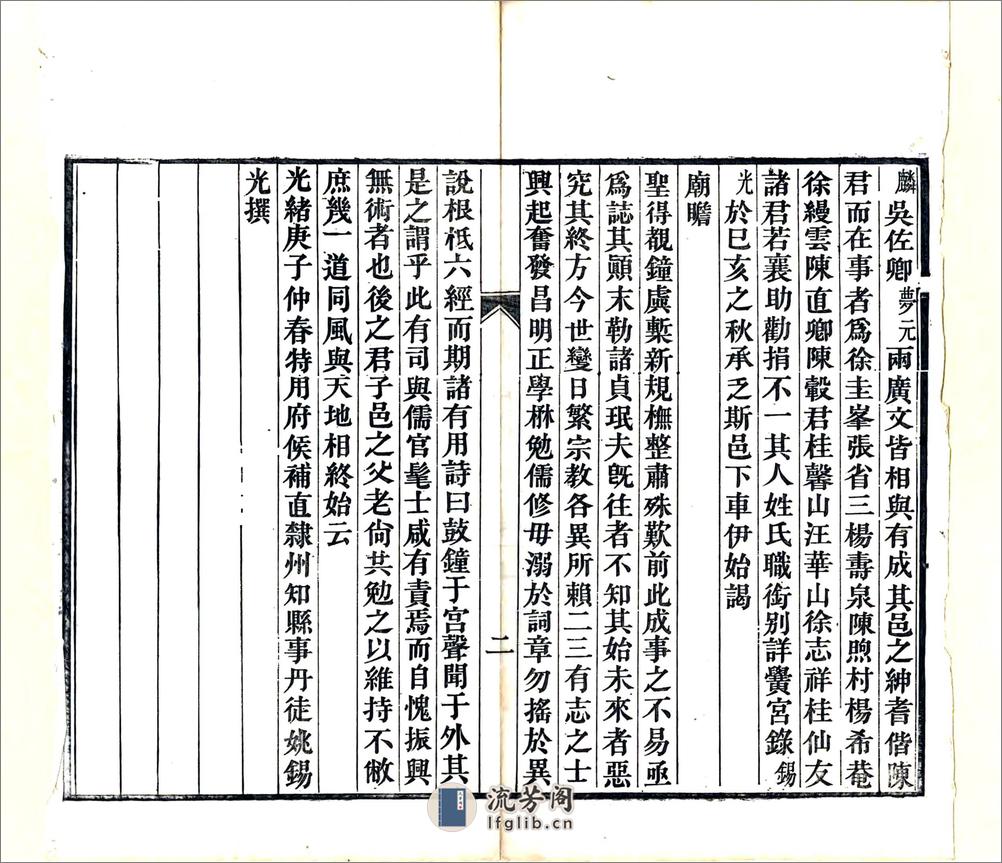 麟吳佐卿夢元兩廣文皆相與有成其邑之紳耆偕陳
君而在事者爲徐圭峯張省三楊壽泉陳煦村楊希菴
徐縵雲陳直卿陳轂君桂馨山汪華山徐志祥桂仙友
諸君若襄助勸捐不一其人姓氏職銜别詳黌宮錄錫
光於已亥之秋承乏斯邑下車伊始謁
廟瞻
聖得覩鐘虡槧新規橅整肅殊歎前此成事之不易亟
爲誌其顚末勒諸貞珉夫旣往者不知其始未來者惡
究其終方今世變日繁宗教各異所賴二三有志之士
興起奮發昌明正學楙勉儒修毋溺於詞章勿搖於異
二
說根柢六經而期諸有用詩曰鼓鐘于宮聲聞于外其
是之謂乎此有司與儒官髦士咸有責焉而自愧振興
無術者也後之君子邑之父老尙其勉之以維持不敝
庶幾一道同風與天地相終始云
光緒庚子仲春特用府候補直隸州知縣事丹徒姚錫
光撰
流芳阁
lfglib.cn